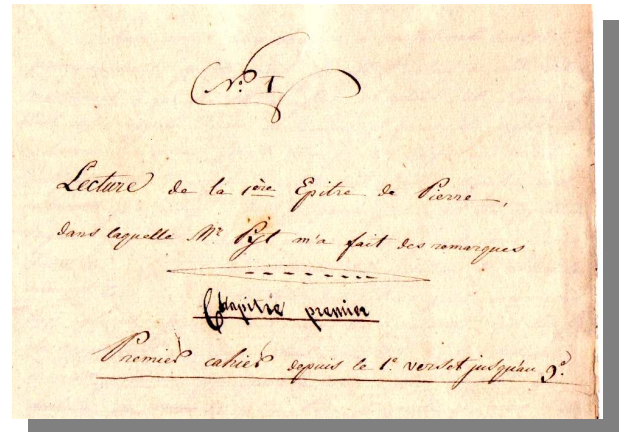 N.° I
Lecture de la 1ère Epitre de Pierre,
dans laquelle Mr Pyt m'a fait des remarques
Chapitre premier
Premier cahier depuis le 1.er verset jusqu'au 9.e